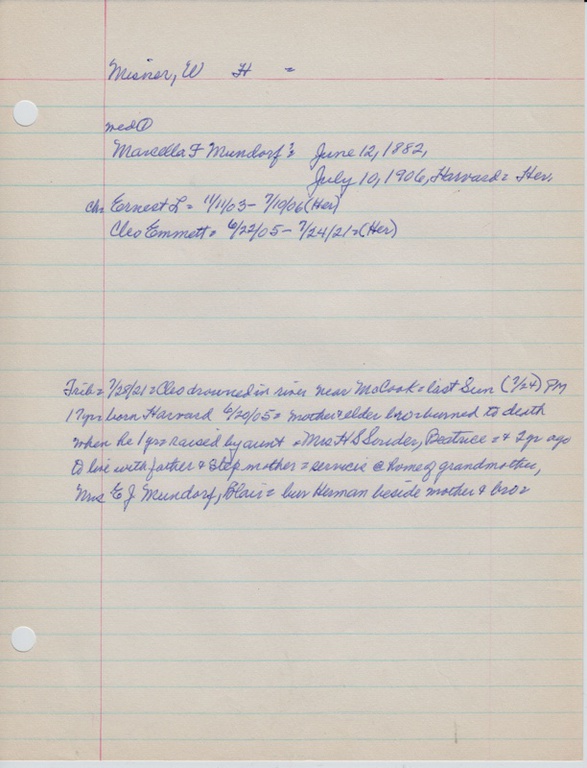 Misner, W H =
med ①
Marcella F Mundorf = June 12, 1882,
July 10, 1906, Harvard = Her.
Ch = Ernest L = 11/11/03 - 7/10/06 (Her)
Cleo Emmett = 6/22/05 - 7/24/21 = (Her)
Trib = 7/28/21 = Cleo drowned in river near McCook = last Sun (7/24) PM
17 yr = born Harvard 6/20/05 = mother & elder bro = burned to death
when he 1 yr = raised by aunt = Mrs H S Souder, Beatrice = & 2 yr ago
to live with father & step mother = servcis @ home of grandmother,
Mrs E J Mundorf, Blair = bur Herman beside mother & bro =